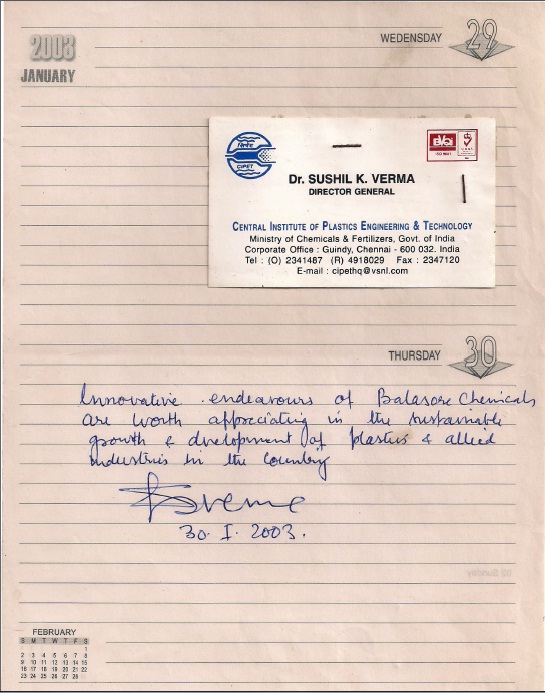 2003
JANUARY
WEDENSDAY 29
CIPET
BVQI
ISO 9001
Dr. SUSHIL K. VERMA
DIRECTOR GENERAL
CENTRAL INSTITUTE OF PLASTICS ENGINEERING & TECHNOLOGY
Ministry of Chemicals & Fertilizers, Govt. of India
Corporate Office : Guindy, Chennai - 600 032. India
Tel : (O) 2341487 (R) 4918029 Fax : 2347120
E-mail : cipethq@vsnl.com
THURSDAY 30
Innovative endeavours of Balasore Chemicals
are worth appreciating in the sustainable
growth & development of plastics & allied
industries in the country
SVerma
30.I.2003.
FEBRUARY
S M T W T F S
1
2 3 4 5 6 7 8
9 10 11 12 13 14 15
16 17 18 19 20 21 22
23 24 25 26 27 28